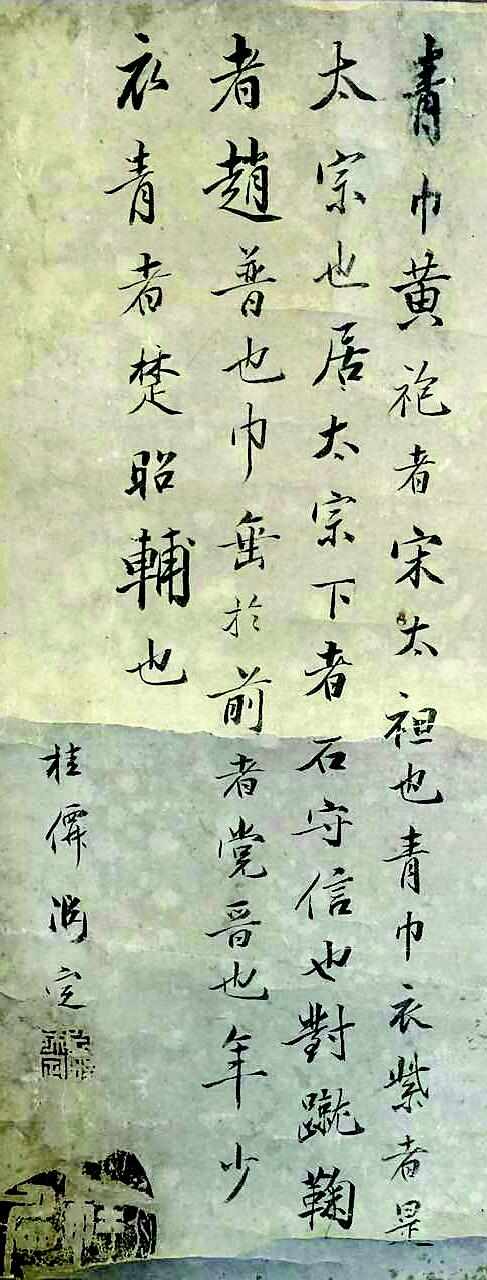 青巾黄袍者宋太祖也青巾衣紫者是
太宗也居太宗下者石守信也對蹴鞠
者趙普也巾垂於前者党晋也年少
衣青者楚昭輔也
桂